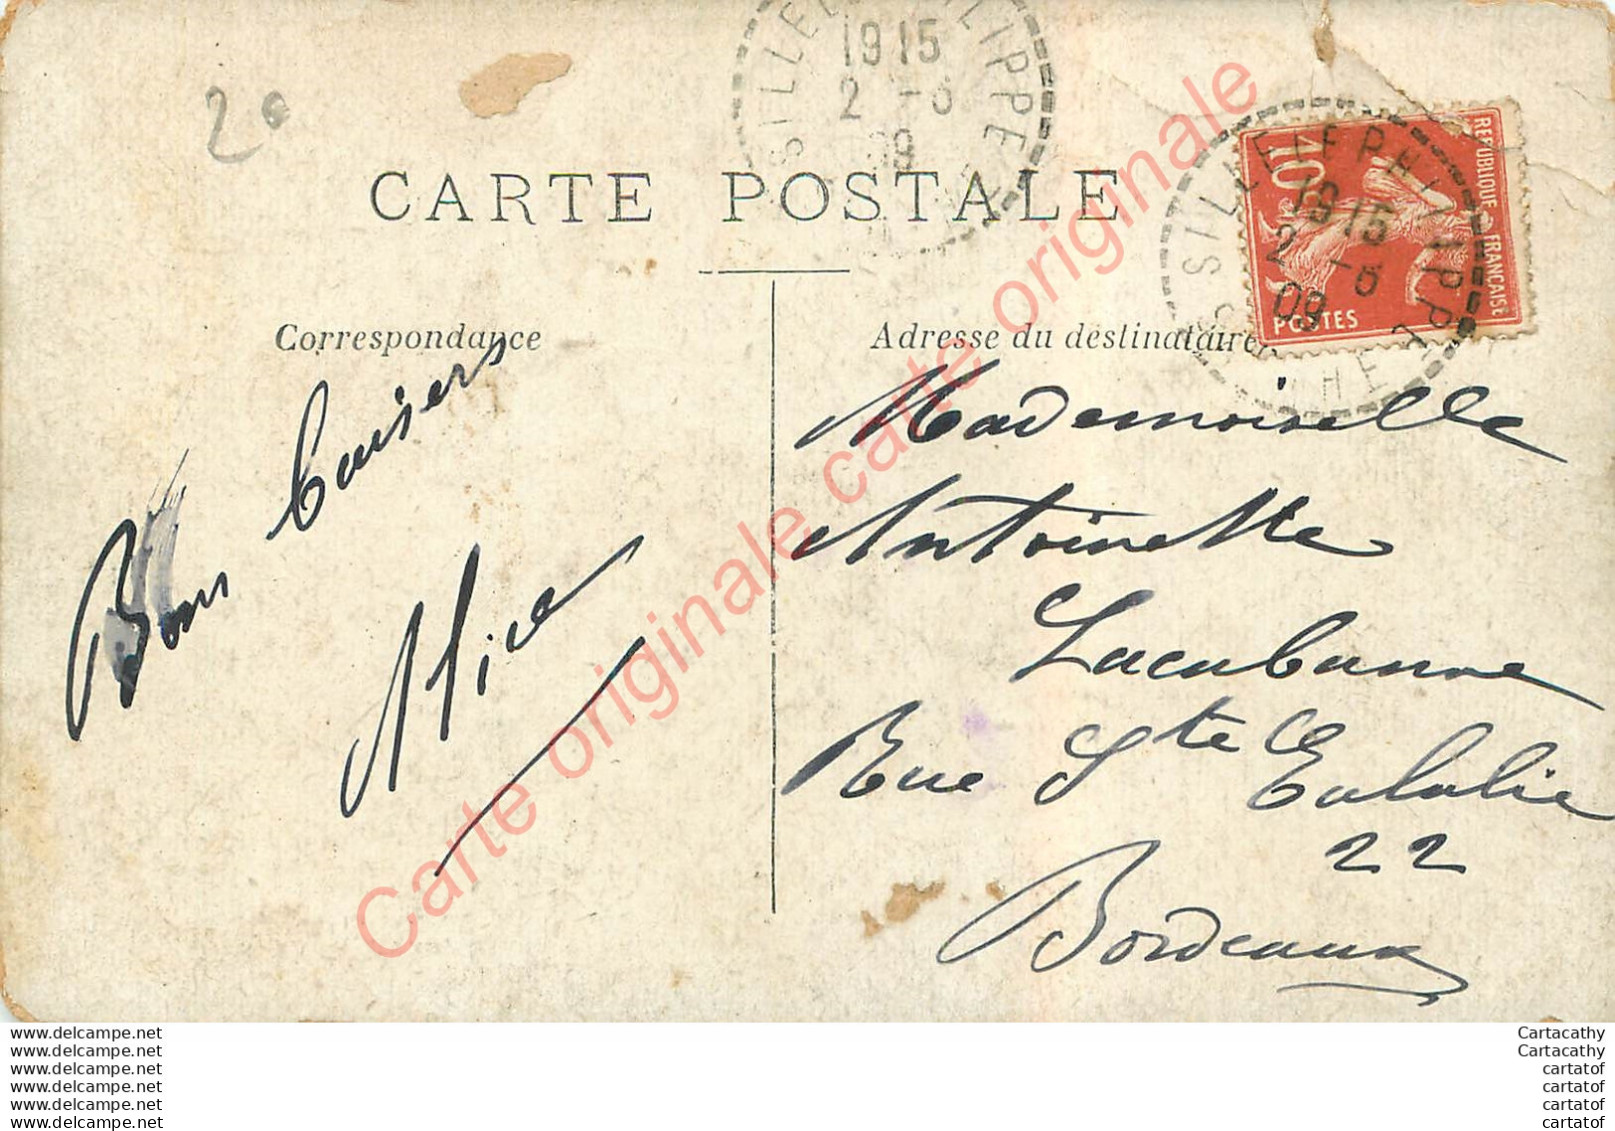 20
1915
2 -6
09
SILLE LE PHILIPPE
CARTE POSTALE
REPUBLIQUE FRANÇAISE
10c
POSTES
SILLE LE PHILIPPE
SARTHE
1915
2 -6
09
Correspondance
Adresse du destinataire
Bons baisers
Alice
Mademoiselle
Antoinette
Lacabanne
Rue Ste Eulalie
22
Bordeaux
Carte originale carte originale
www.delcampe.net
www.delcampe.net
www.delcampe.net
www.delcampe.net
www.delcampe.net
www.delcampe.net
Cartacathy
Cartacathy
cartatof
cartatof
cartatof
cartatof